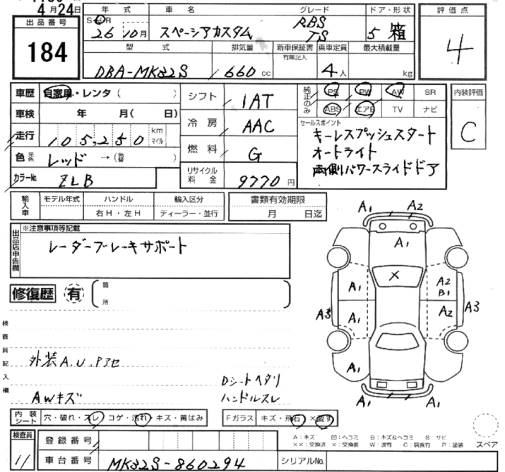 4月24日
出品番号
184
年式 車名 グレード ドア・形状
S・H 26年10月 スペーシアカスタム RBS TS 5 箱
型式 排気量 新車保証書 有無記入 乗車定員 最大積載量
DBA-MK32S 660cc 4人 kg
評価点
4
車歴 自家用・レンタ( )
車検 年 月( 日)
走行 105,250 km マイル
色 レッド →( )
カラーNo. ZLB
シフト 1AT
冷房 AAC
燃料 G
リサイクル料金 9770円
純正のみ PS PW AW SR
ABS エアB TV ナビ
セールスポイント
キーレスプッシュスタート
オートライト
両側パワースライドドア
内装評価
C
輸入車 モデル年式 ハンドル 輸入区分 書類有効期限
右H・左H ディーラー・並行 月 日迄
出品店申告欄
※注意事項等記載
レーダーブレーキサポート
修復歴 有 箇所
検査員記入欄
外装A.U.Pアセ
AWキズ
Dシートヘタリ
ハンドルスレ
A1 A2
A1
A1 A2 B1
X
A3 A1 A1 A3
A1
内装シート 穴・破れ・スレ コゲ・汚れ キズ・黄ばみ Fガラス キズ・飛石
検査員 11
登録番号
車台番号 MK32S-860294 シリアルNo.
A:キズ
スペア